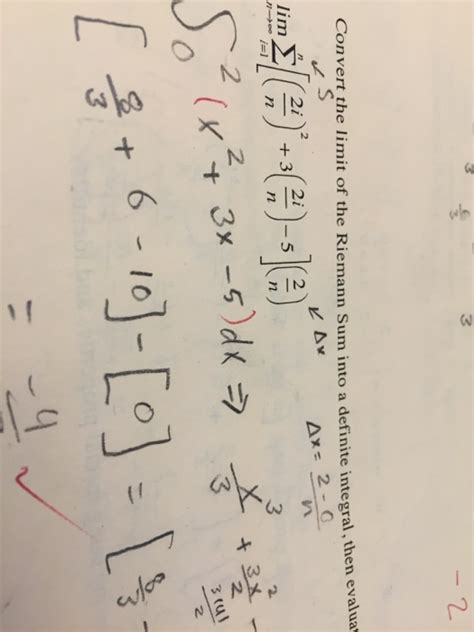 Convert the limit of the Riemann Sum into a definite integral, then evalua
lim n→∞ n Σ i=1 [(2i/n)² + 3(2i/n) − 5](2/n)
↙ S
↙ Δx
Δx = 2-0/n
∫₀² (x² + 3x -5)dx ⇒ x³/3 + 3x²/2 -
3(4)/2
[8/3 + 6 - 10] - [0] = [8/3 -
= -4
-2
3